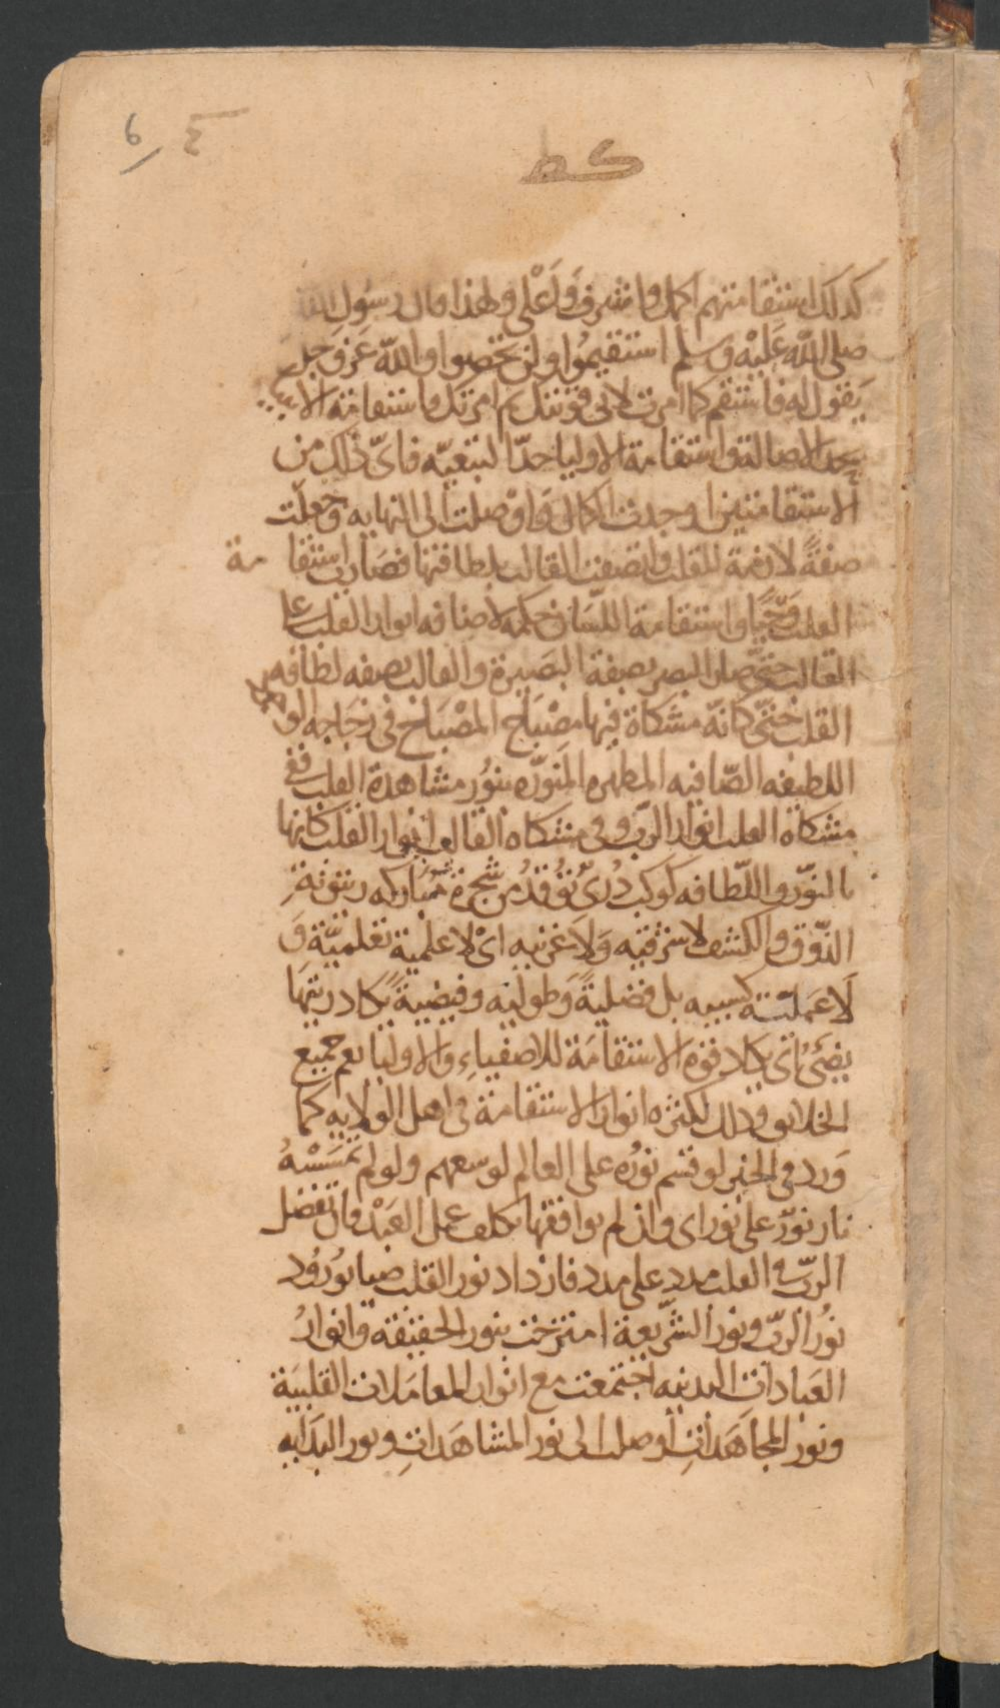 6 ٤
كط
كذلك استقامتهم اكمل واشرف وَاَعْلى ولهذا قال رسُول الله
صلى اللّه عَليْه وسلم استقيمُوا ولن تحصوا واللّه عَزوجل
يَقول له فاستقم كما امرت لانى قويتك بم امرتك واستقامة الانبيا
بحد الاصالة واستقامة الاوليا حدّ التبعيّه فاىّ ذلك من
الاستقامتين اوجدت الكمال وَاوْصلت الى النهايه وَجعلت
صفةً لازمة للقلب واتصفت القالب بلطافتها فصَارت استقامة
القلب وَحْيًا واستقامة اللسَان حكمه لاضافه انوار القلب على
القالب حتّى صار البصر بصفة البَصيرة والقالب بصفه لطافه
القلب حتىّ كانهّ مشكاة فيها مصْبَاح المصْبَاح فى زجَاجه الوجود
اللطيفه الصّافيه المطهره المنَورّه بنوُر مشاهدة القلب ففى
مشكاة القلب انوار الربّ وفى مشكاه القالب انوار القلب كانها
بالنوّر واللّطافه كوكب دُرىّ توُقدُ من شجرة مُبَاركه زيتونةِ
الذّوق والكشف لا شرقيه وَلاَ غربيه اىْ لا علميةٍ تعلميّة وَ
لاَ عَمليّة كسبيه بل فضليةً وَطوليه وفيضيةً يكاد زيتهَا
يضَئُ اى يكاد قوه الاستقامَة للاصفياءِ والاوليا يعم جميع
الخلايق وذلك لكثره انوار الاستقامة فى اهل الولايه كما
وَرد فى الخبر لو قسم نوُره على العالم لوسعهم ولو لم تمسَسْهُ
نار نورٌ على نور اى وان لم يوافقها تكلف عمل العَبْد فان تفضل
الربّ فى القلب مدد على مدد فازداد نور القلب ضيا بوُروُد
نوُر الربّ ونور الشّريعة امتزجت بنور الحقيقة وَانوارُ
العَبادات البدنيه اجتمعت مع انوار المعامَلات القلبيَة
ونورُ المجاهَداتِ اوصلت الى نور المشاهَداتِ ونور البدَايه